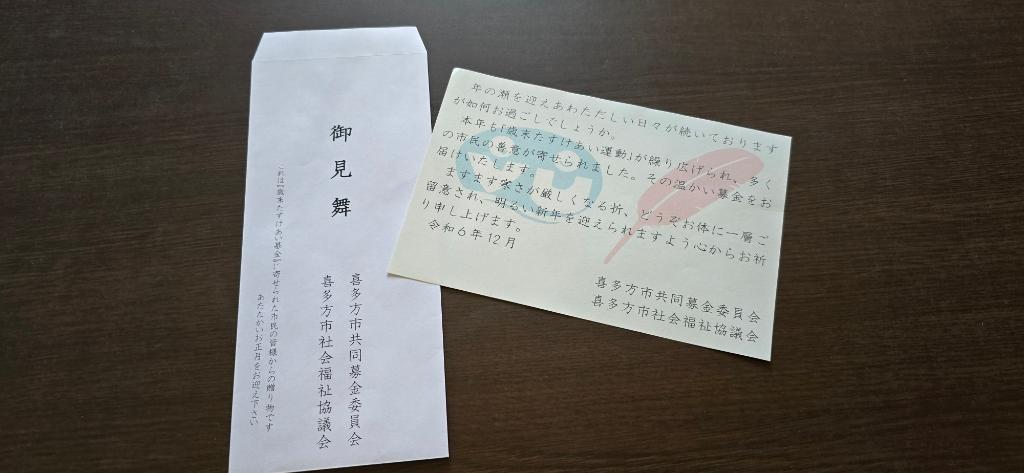 御見舞
喜多方市共同募金委員会
喜多方市社会福祉協議会
これは『歳末たすけあい募金』に寄せられた市民の皆様からの贈り物です
あたたかいお正月をお迎え下さい
年の瀬を迎えあわただしい日々が続いております
が如何お過ごしでしょうか。
本年も「歳末たすけあい運動」が繰り広げられ、多く
の市民の善意が寄せられました。その温かい募金をお
届けいたします。
ますます寒さが厳しくなる折、どうぞお体に一層ご
留意され、明るい新年を迎えられますよう心からお祈
り申し上げます。
令和6年12月
喜多方市共同募金委員会
喜多方市社会福祉協議会